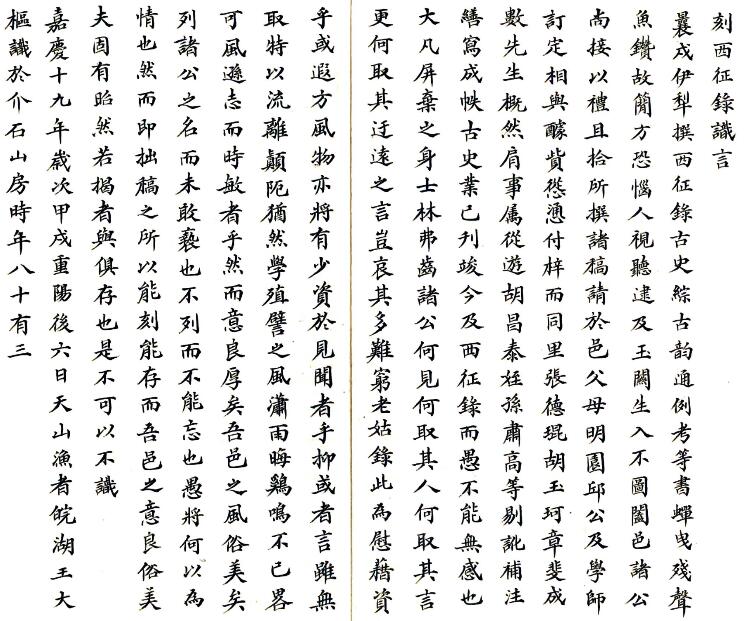 刻西征錄識言
曩戍伊犁撰西征錄古史綜古韵通例考等書蟬曳殘聲
魚鑽故簡方恐惱人視聽逮及玉關生入不圖闔邑諸公
尚接以禮且拾所撰諸稿請於邑父母明園邱公及學師
訂定相與醵貲慫慂付梓而同里張德琨胡玉珂章斐成
數先生概然肩事属從遊胡昌泰姪孫肅高等剔訛補注
繕寫成帙古史業已列竣今及西征錄而愚不能無感也
大凡屏棄之身士林弗齒諸公何見何取其人何取其言
更何取其迂遠之言豈哀其多難窮老姑錄此為慰藉資
乎或遐方風物亦將有少資於見聞者乎抑或者言雖無
取特以流離顛阨猶然學殖譬之風瀟雨晦鷄鳴不已畧
可風遜志而時敏者乎然而意良厚矣吾邑之風俗美矣
列諸公之名而未敢褻也不列而不能忘也愚將何以為
情也然而即拙稿之所以能刻能存而吾邑之意良俗美
夫固有昭然若揭者與俱存也是不可以不識
嘉慶十九年嵗次甲戌重陽後六日天山漁者皖湖王大
樞識於介石山房時年八十有三